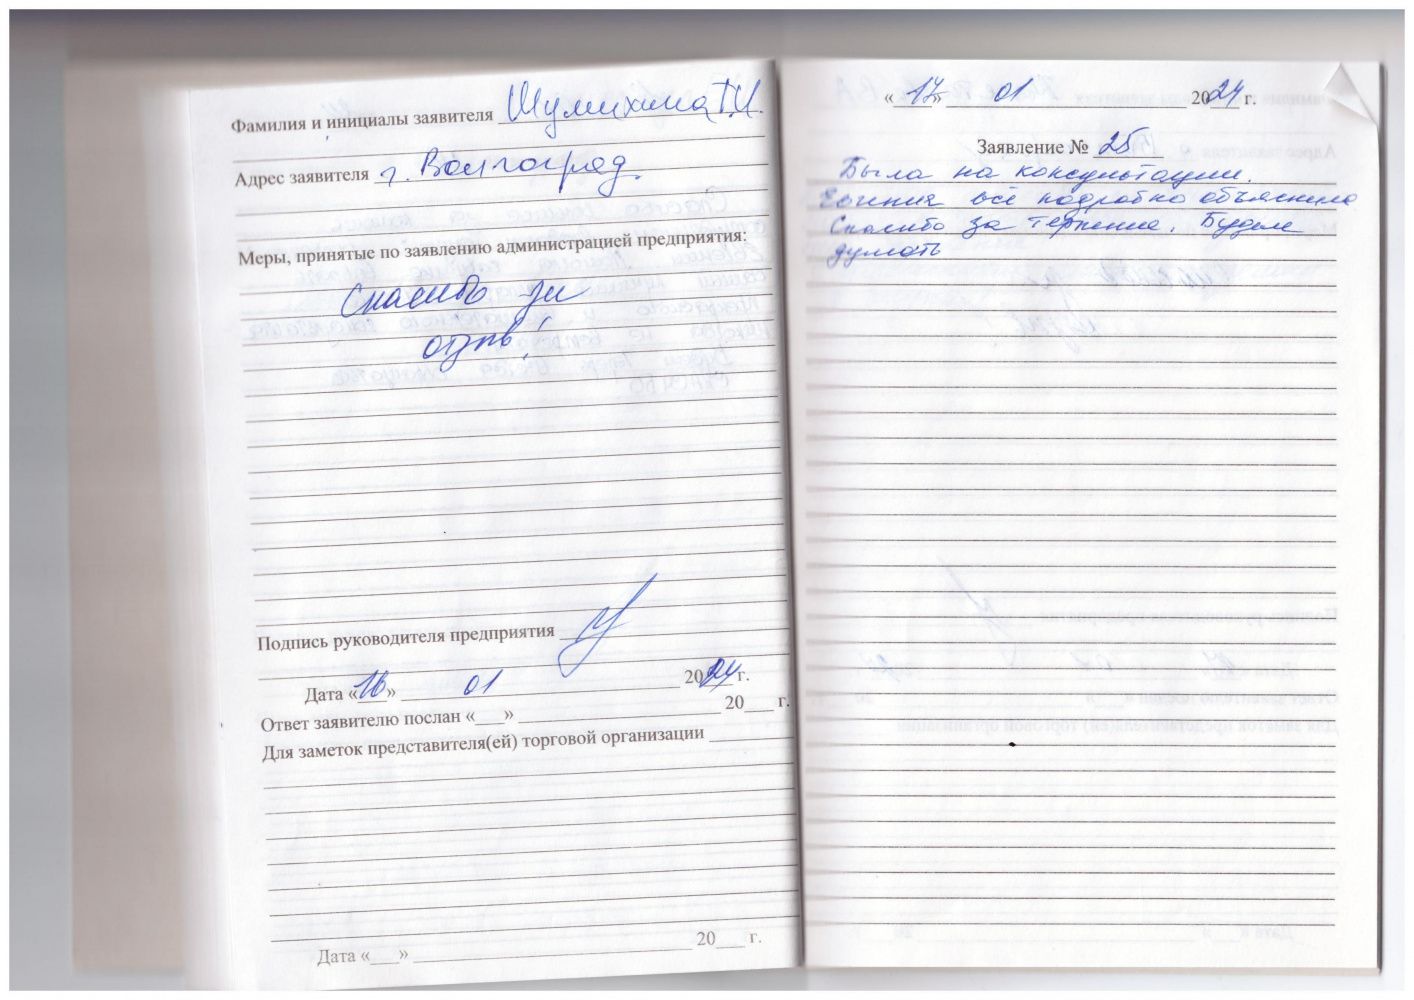 Фамилия и инициалы заявителя Шумихина Т.И.
Адрес заявителя г. Волгоград
Меры, принятые по заявлению администрацией предприятия:
Спасибо за
отзыв!
Подпись руководителя предприятия
Дата «16» 01 2024 г.
Ответ заявителю послан «___» 20___ г.
Для заметок представителя(ей) торговой организации
Дата «___» 20___ г.
«17» 01 2024 г.
Заявление № 25
Была на консультации.
всё подробно объяснила
Спасибо за терпение. Будем
думать